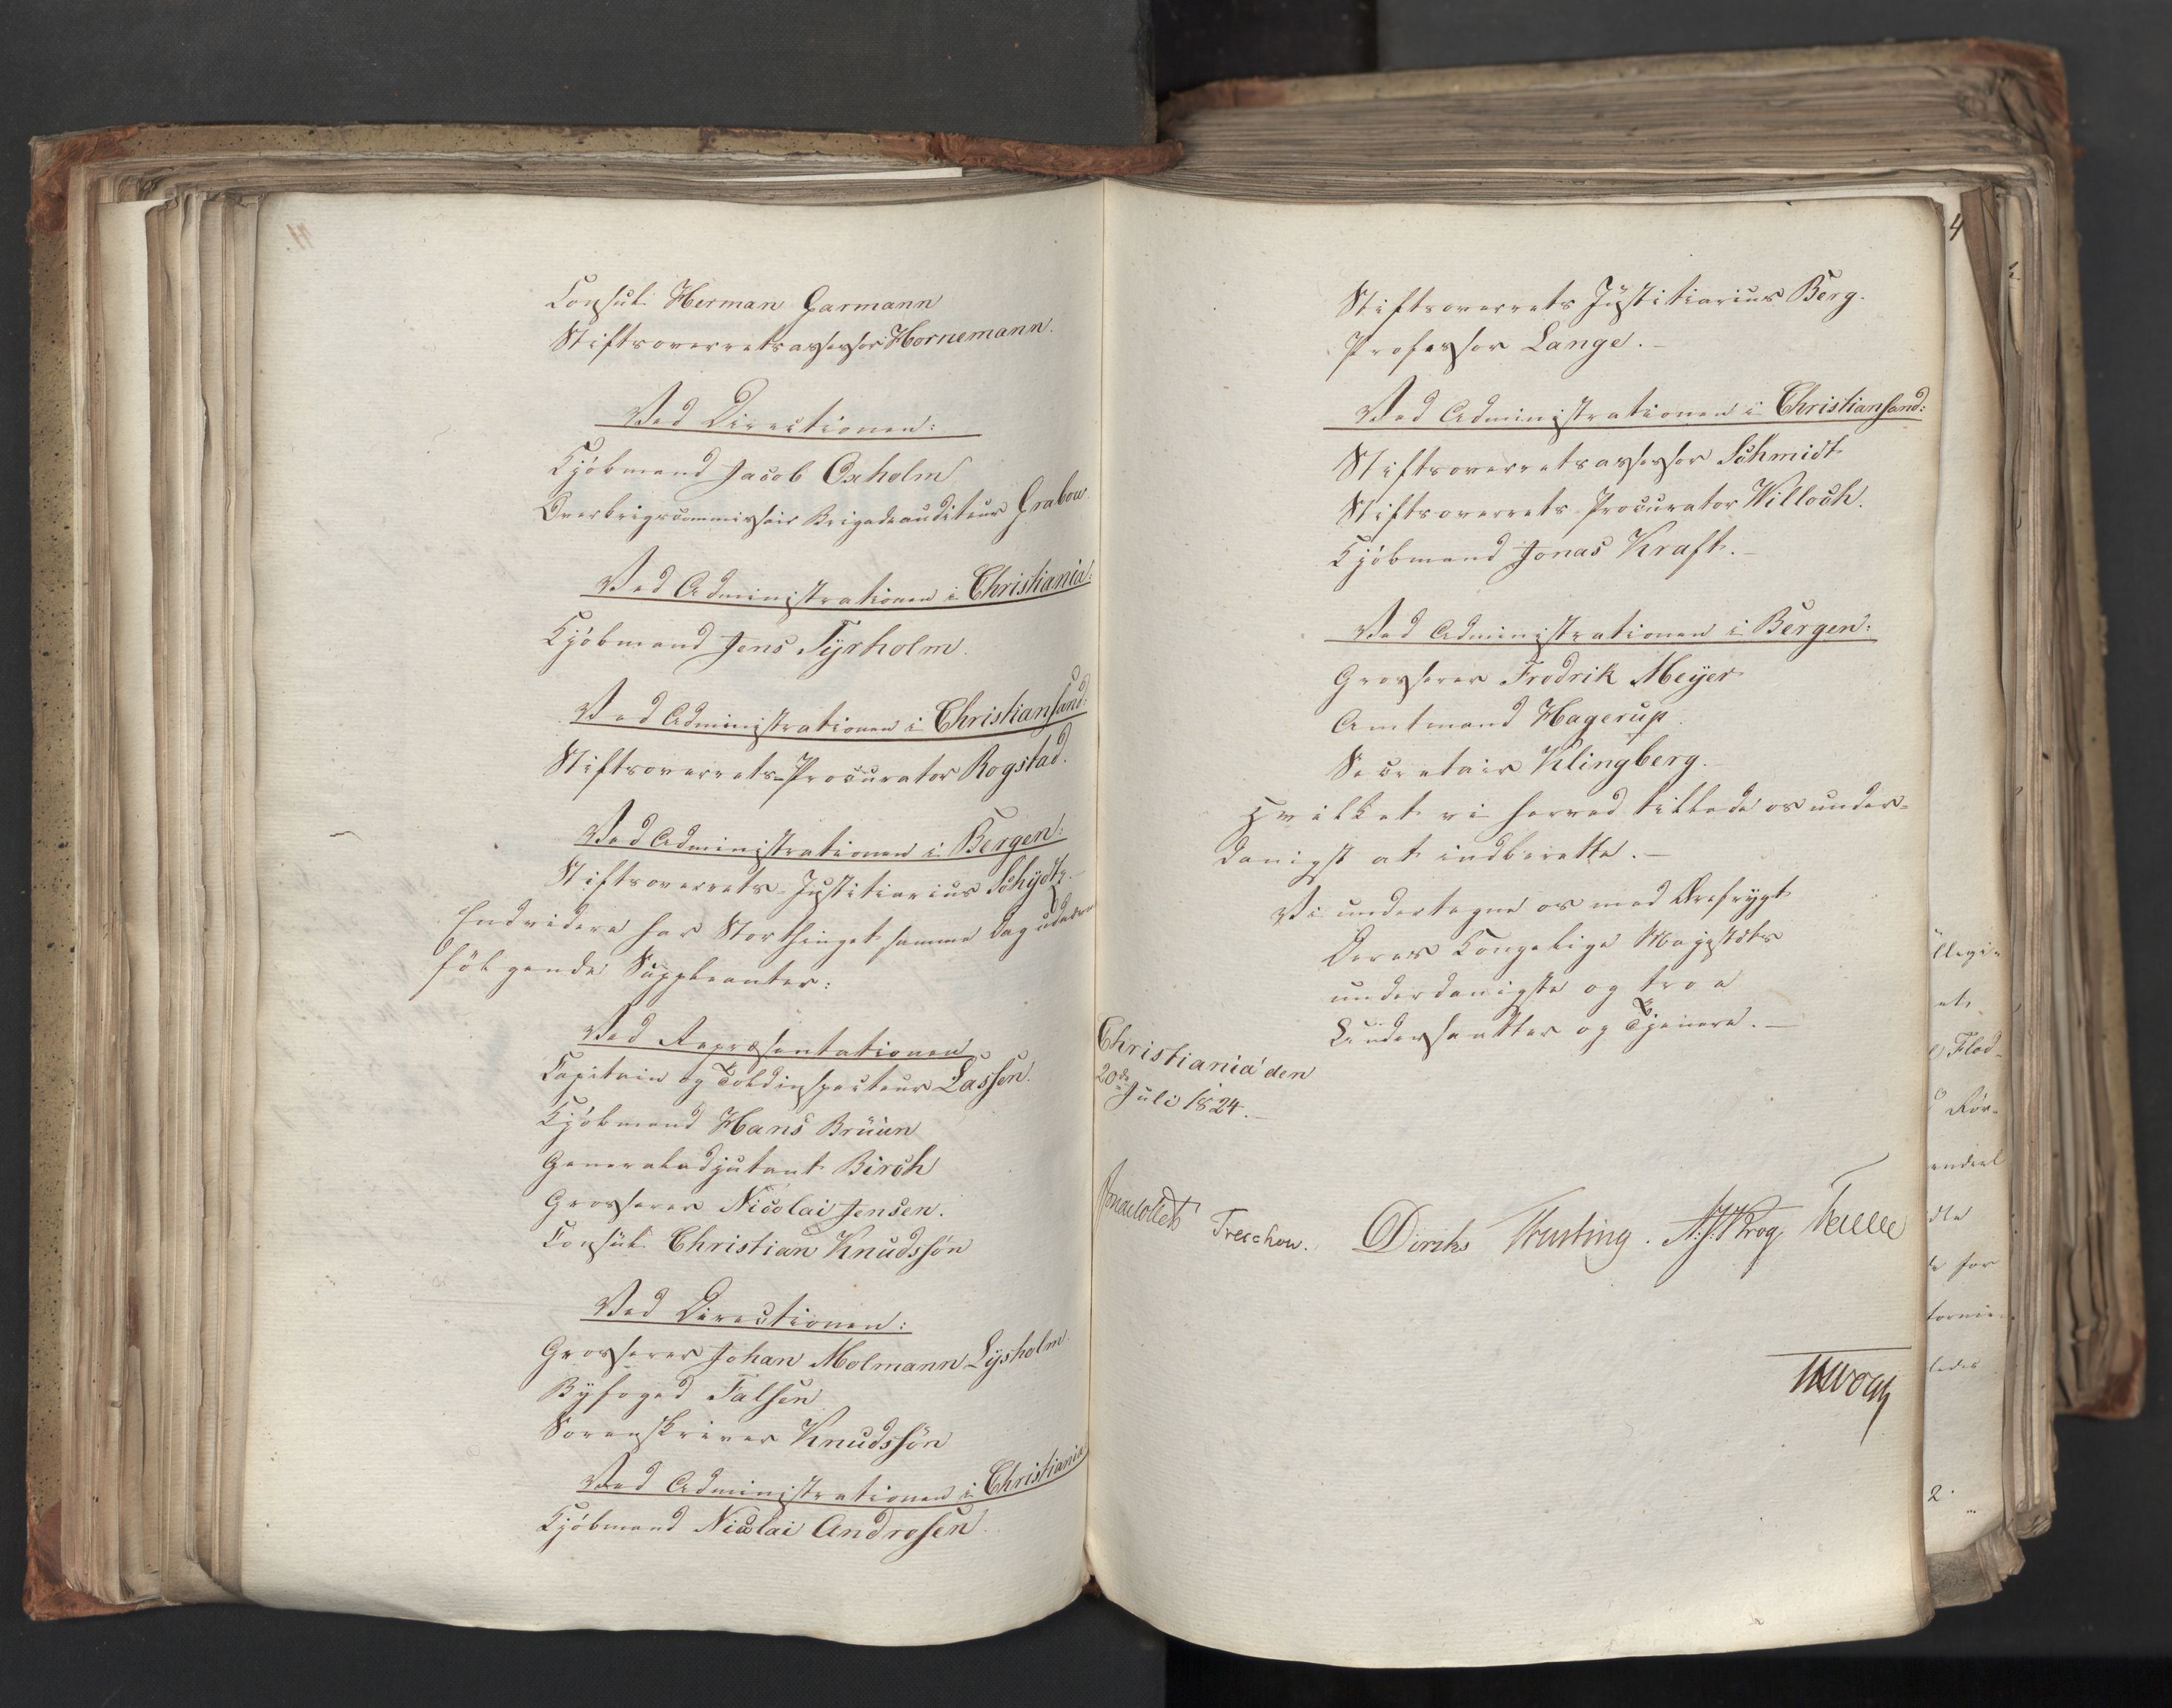 Consul Herman Garmann
Stiftsoverretsassessor Hornemann.
Ved Directionen:
Kjöbmand Jacob Oxholm
Overkrigscommissair Brigadeauditeur Grabow
Ved Administrationen i Christiania:
Kjöbmand Jens Tyrholm.
Ved Administrationen i Christiansand:
Stiftsoverrets-Procurator Rogstad.
Ved Administrationen i Bergen:
Stiftsoverrets-Justitiarius Schydtz.
Endvidere har Storthinget samme Dag udvalgt
fölgende Suppleanter:
Ved Repræsentationen
Capitain og Toldinspecteur Lassen.
Kjöbmand Hans Brüün
Generaladjutant Birch
Grosserer Nicolai Jensen.
Consul Christian Knudssön
Ved Directionen:
Grosserer Johan Molmann Lysholm
Byfoged Falsen
Sorenskriver Knudssön
Ved Administrationen i Christiania
Kjöbmand Nicolai Andresen
4
Stiftsoverrets Justitiarius Berg.
Professor Lange.
Ved Administrationen i Christiansand:
Stiftsoverretsassessor Schmidt
Stiftsoverrets-Procurator Willoch.
Kjöbmand Jonas Kraft.
Ved Administrationen i Bergen:
Grosserer Fredrik Meyer
Amtmand Hagerup
Secretair Klingberg.
Hvilket vi herved tillade os under-
danigst at indberette.
Vi undertegne os med Ærefrygt
Deres Kongelige Majestæts
underdanigste og troe
Undersaatter og Tjenere.
Christiania den
20de Juli 1824.
Jonas Collett Treschow. Diriks Fasting. A.J. Krog